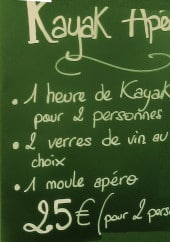 Kayak Apé
• 1 heure de Kayak
pour 2 personnes
• 2 verres de vin au
choix
• 1 moule apéro
25€ (pour 2 pers